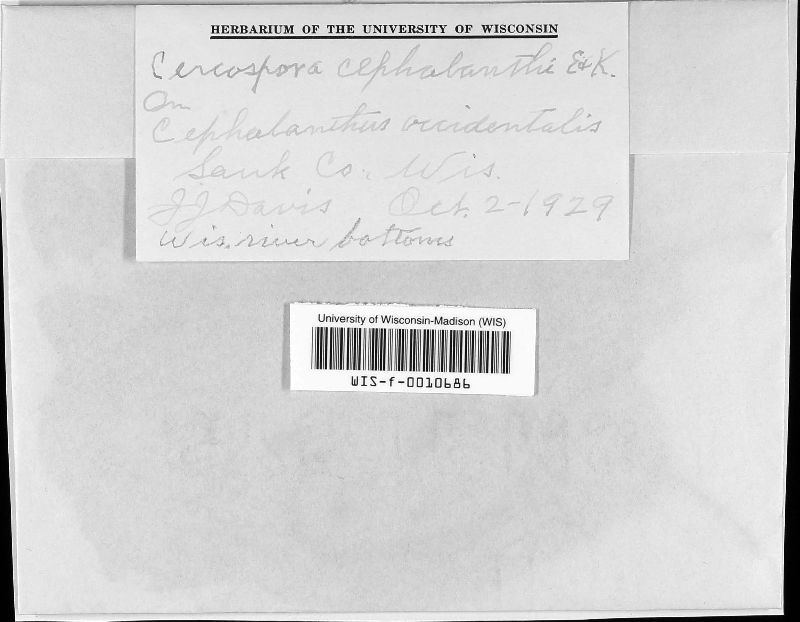 HERBARIUM OF THE UNIVERSITY OF WISCONSIN
Cercospora cephalanthi E&K.
On
Cephalanthus occidentalis
Sauk Co., Wis.
JJ Davis Oct. 2-1929
Wis. river bottoms
University of Wisconsin-Madison (WIS)
WIS-f-0010686